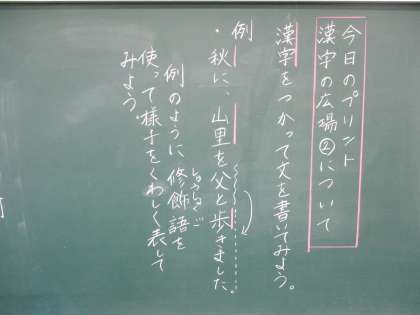 今日のプリント
漢字の広場②について
漢字をつかって文を書いてみよう。
例
・秋に、山里を父と歩きました。
例のように修飾語を
しゅうしょくご
使って様子をくわしく表して
みよう。